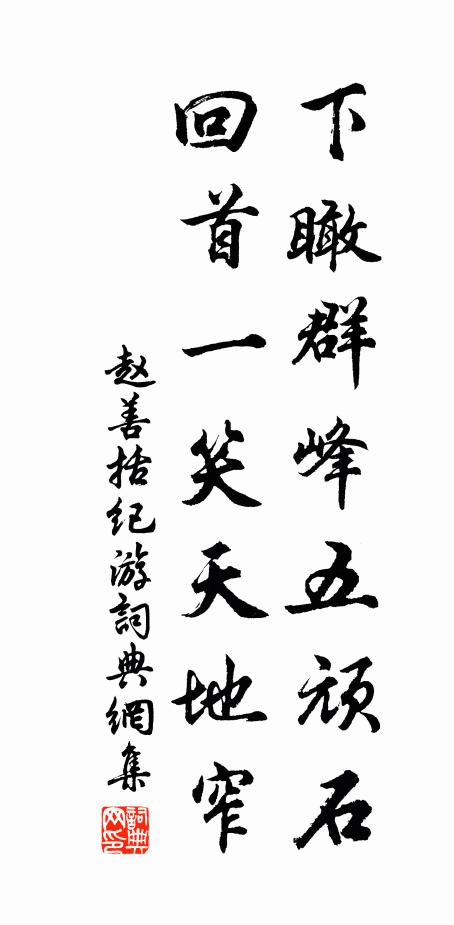 下瞰群峰五顽石
回首一笑天地窄
赵善括纪游詞典網集
詞典网印